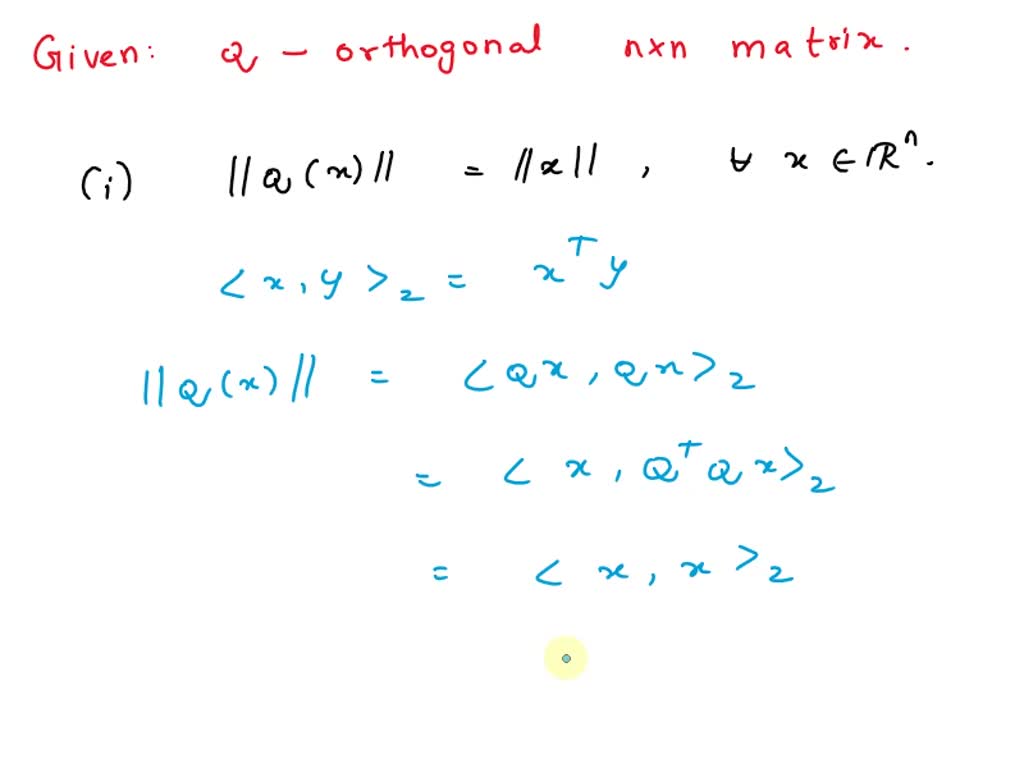 Given: Q - orthogonal n×n matrix.
(i) ||Q(x)|| = ||x||, ∀ x ∈ ℝⁿ.
<x, y>₂ = xᵀy
||Q(x)|| = <Qx, Qx>₂
= <x, QᵀQx>₂
= <x, x>₂